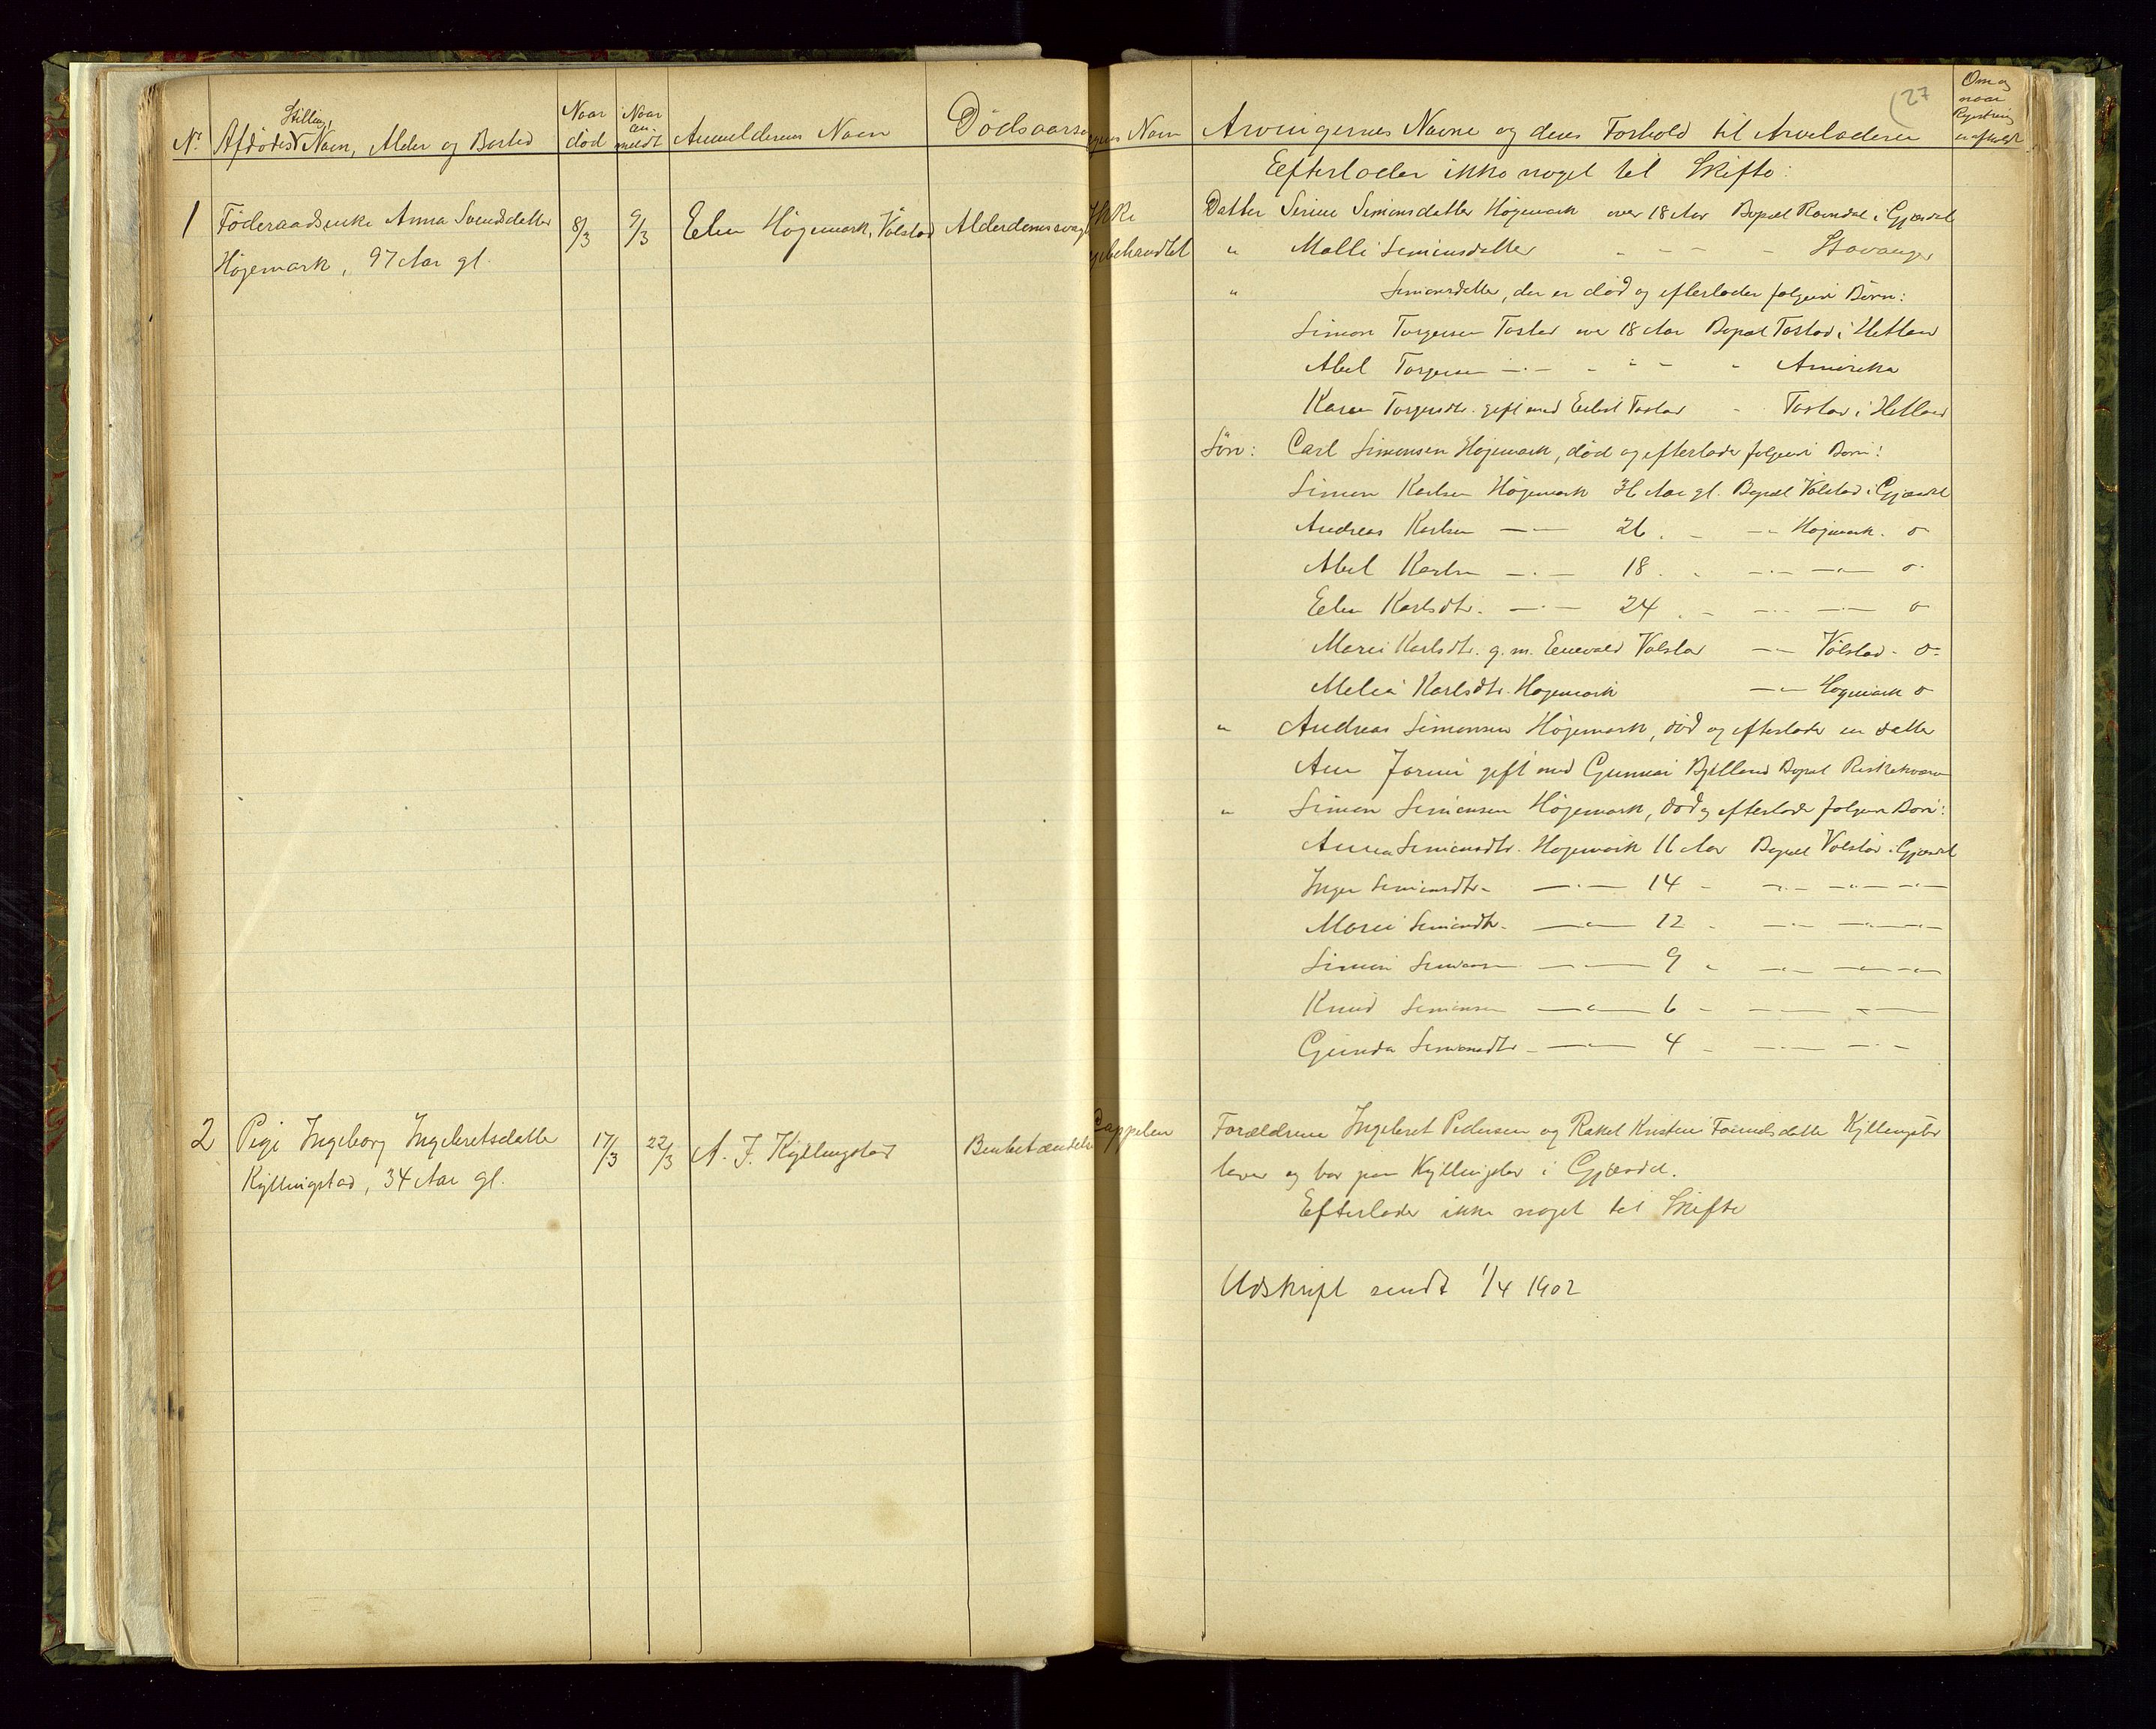 (27
Nr. Afdødes Stilling, Navn, Alder og Bosted
Naar død
Naar anmeldt
Anmelderens Navn
Dødsaarsa
gens Navn
Arvingernes Navne og deres Forhold til Arveladeren
Om og naar Registrering er afholdt
Efterlader ikke noget til Skifte:
1 Føderaadsenke Anna Svendsdatter
Høgemark, 97 Aar gl.
8/3
9/3
Elen Høgemark, Volstad
Alderdomssvag
Ikke
gebehandlet
Datter Serine Simonsdatter Høgemark over 18 Aar Bopæl Ravndal i Gjæsdal
" Malli Simonsdatter - - - - Stavanger
" Simonsdatter, der er død og efterlader følgende Børn:
Simon Torgersen Tastad over 18 Aar Bopæl Tastad i Hetland
Abel Torgersen -"- - " - " Amerika
Karen Torgersdtr. gift med Tastad - Tastad i Hetland
Søn: Carl Simonsen Høgemark, død og efterlader følgende Børn:
Simon Karlsen Høgemark 36 Aar gl. Bopæl Volstad i Gjæsdal
Andreas Karlsen -"- 26. - -"- Høgemark. o-
Abel Karlsen -"- 18. - -"- -"- o-
Elen Karlsdtr. -"- 24. - -"- -"- o-
Marie Karlsdtr. g. m. Enevald Volstad -"- Volstad - o-
Melia Karlsdtr. Høgemark -"- Høgemark o-
" Andreas Simonsen Høgemark, død og efterlader en datter
Ane gift med Gunnar Bjelland Bopæl Riskekværn
" Simon Simonsen Høgemark, død og efterlader følgende Børn:
Anna Simonsdtr. Høgemark 16 Aar Bopæl Volstad i Gjæsdal
Inger Simonsdtr. -"- 14 - -"- -"- -"-
Marie Simonsdtr. -"- 12 - -"- -"-
Simon Simonsen -"- 9 " -"- -"-
Knud Simonsen -"- 6 - -"- -"-
Gunda Simonsdtr. -"- 4 - -"- -"-
2 Pegi Ingeborg Ingebretsdatter
Kyllingstad, 34 Aar gl.
17/3
22/3
A. J. Kyllingstad
Benbetændelse
Cappelen
Forældrene Ingebret Pedersen og Rakel Kristine Kyllingstad
lever og bor paa Kyllingstad i Gjæsdal.
Efterlader ikke noget til Skifte
Udskrift sendt 1/4 1902